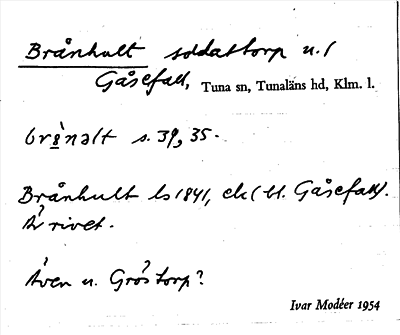 Brånhult soldattorp u./
Gåsefall, Tuna sn, Tunaläns hd, Klm. l.
s. 39, 35.
Brånhult ls 1841, ek (bl. Gåsefall).
Är rivet.
Även u. Gröstorp?
Ivar Modéer 1954